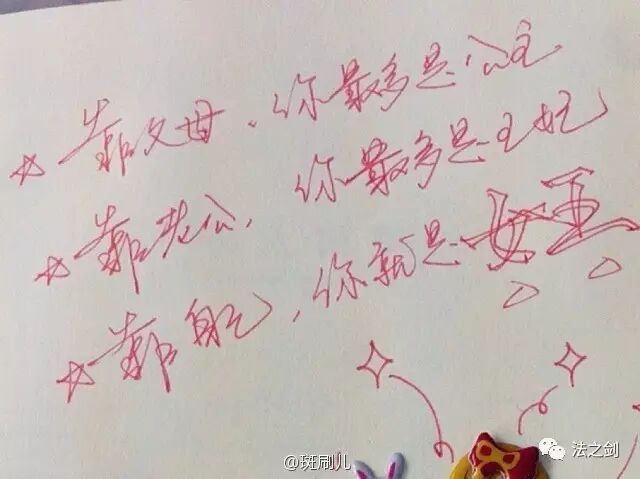 ☆ 靠父母，你最多是公主
☆ 靠老公，你最多是王妃
☆ 靠自己，你就是女王
@斑刷儿
法之剑